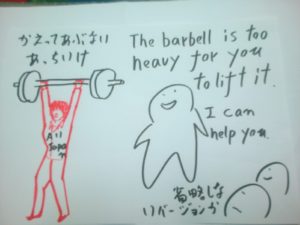 かえってあぶない
あっちいけ
The barbell is too
heavy for you
to lift it.
I can
help you.
All
Japan
省略しな
いバージョンが